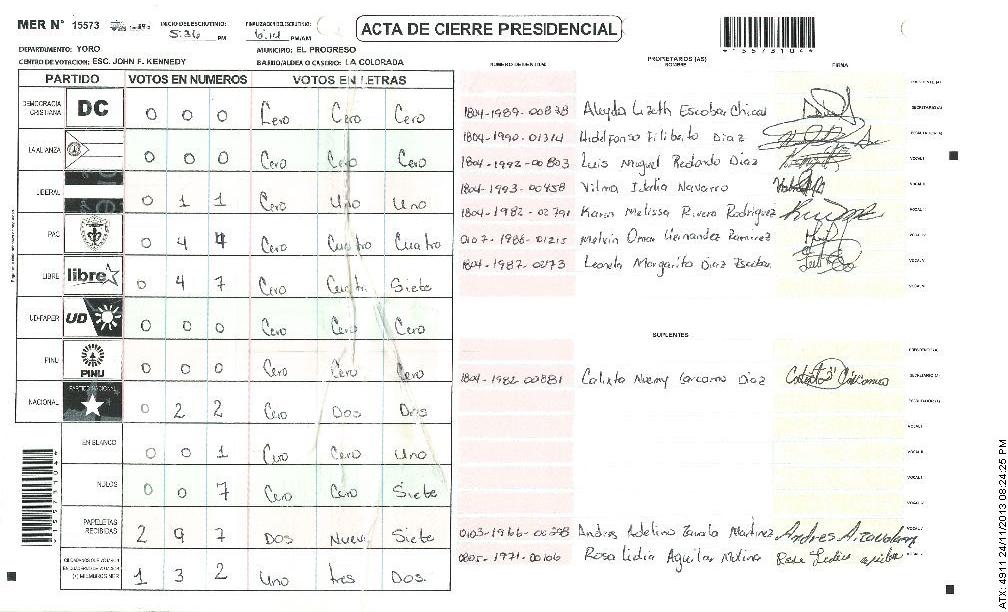 MER N° 15573 INICIO DEL ESCRUTINIO: 5:26 PM FINALIZACION DEL ESCRUTINIO: 6:14 PM/AM
ACTA DE CIERRE PRESIDENCIAL
DEPARTAMENTO: YORO MUNICIPIO: EL PROGRESO
CENTRO DE VOTACION: ESC. JOHN F. KENNEDY BARRIO/ALDEA O CASERIO: LA COLORADA
PARTIDO VOTOS EN NUMEROS VOTOS EN LETRAS
DEMOCRACIA CRISTIANA DC 0 0 0 Cero Cero Cero
LA ALIANZA 0 0 0 Cero Cero Cero
LIBERAL 0 1 1 Cero Uno Uno
PAC 0 4 4 Cero Cuatro Cuatro
LIBRE libre 0 4 7 Cero Cuatro Siete
UD-FAPER UD 0 0 0 Cero Cero Cero
PINU PINU 0 0 0 Cero Cero Cero
NACIONAL PARTIDO NACIONAL 0 2 2 Cero Dos Dos
EN BLANCO 0 0 1 Cero Cero Uno
NULOS 0 0 7 Cero Cero Siete
PAPELETAS RECIBIDAS 2 9 7 Dos Nueve Siete
1 3 2 Uno tres Dos.
NUMERO DE IDENTIDAD PROPIETARIOS (AS) NOMBRE FIRMA
1804-1989-00828 Aleyda Lizeth Escobar
1804-1990-01314 Hildefonso Filiberto Diaz
1804-1992-00803 Luis Miguel Redondo Diaz
1804-1993-00458 Vilma Idalia Navarro
1804-1982-02791 Karen Melissa Rivera Rodriguez
0107-1986-01215 Melvin Omar Hernandez Ramirez
Margarita Diaz Escobar
SUPLENTES
1804-1982-00881 Calixta Noemy Carcamo Diaz
Andres Adelino Zavala Martinez
0805-1971-00106 Rosa Lidia Aguilar Molina
ATX: 4911 24/11/2013 08:24:25 PM